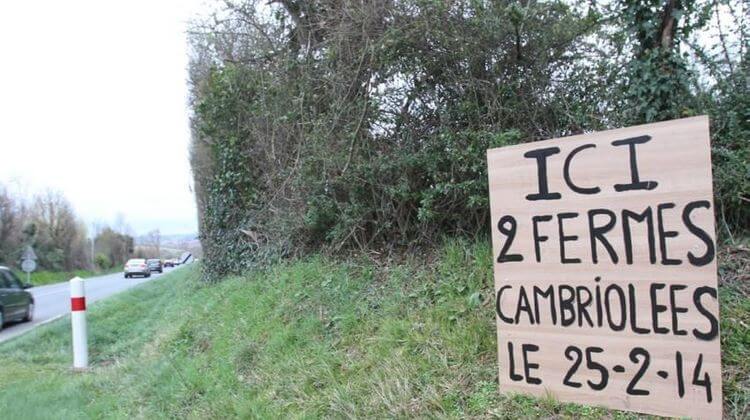 ICI
2 FERMES
CAMBRIOLEES
LE 25-2-14